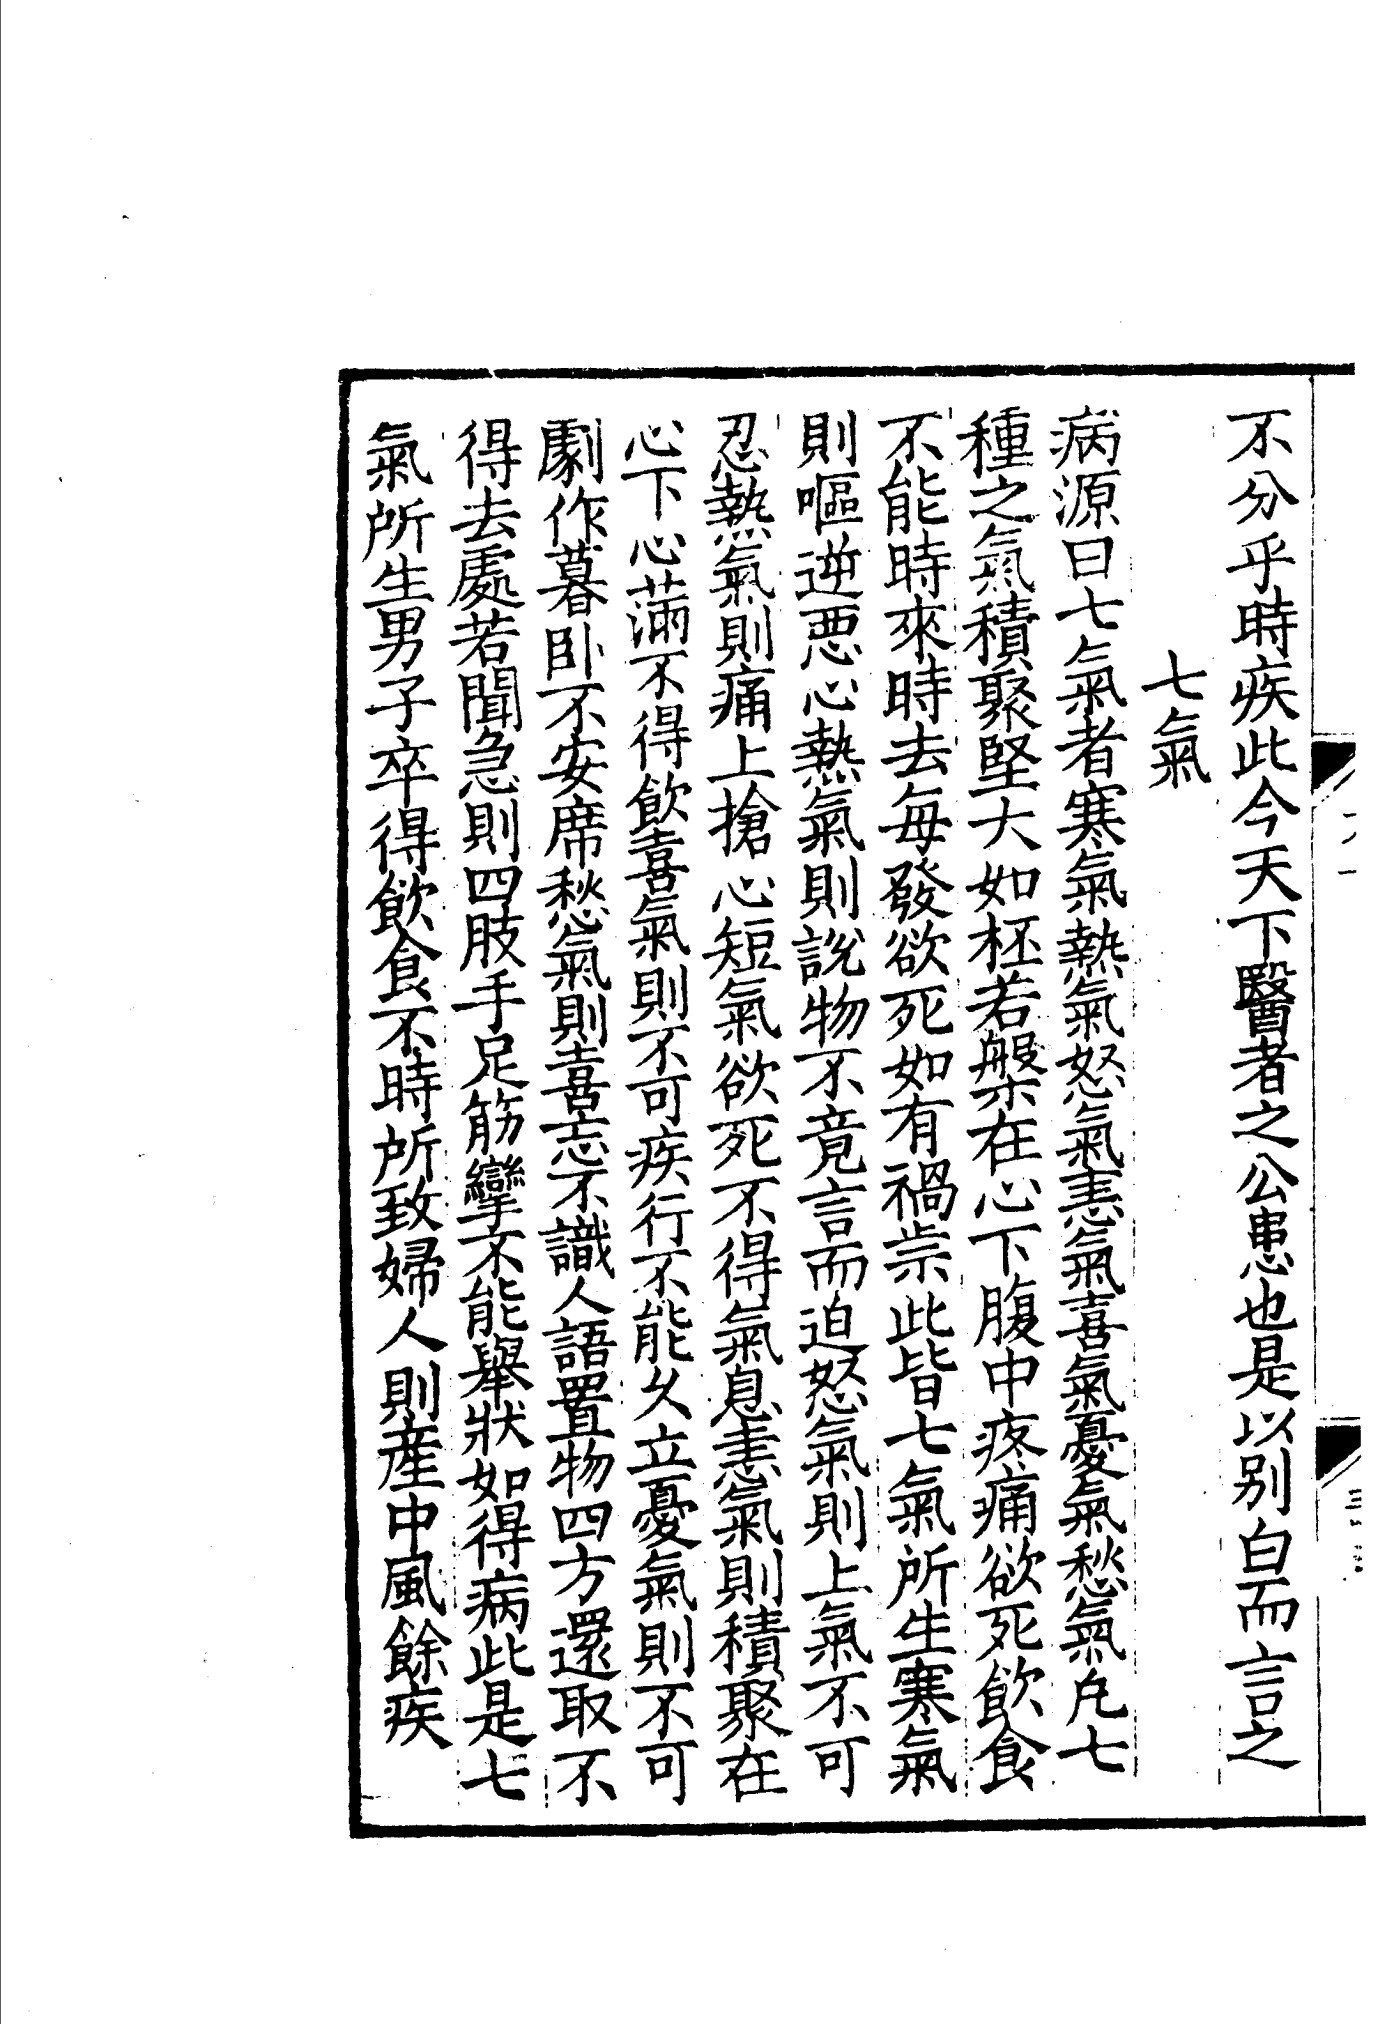 不分乎時疾此今天下醫者之公患也是以别白而言之
七氣
病源曰七氣者寒氣熱氣怒氣恚氣喜氣憂氣愁氣凡七
種之氣積聚堅大如柸若槃在心下腹中疼痛欲死飲食
不能時來時去每發欲死如有禍祟此皆七氣所生寒氣
則嘔逆惡心熱氣則說物不竟言而迫怒氣則上氣不可
忍熱氣則痛上搶心短氣欲死不得氣息恚氣則積聚在
心下心滿不得飲喜氣則不可疾行不能久立憂氣則不可
劇作暮卧不安席愁氣則喜忘不識人語置物四方還取不
得去處若聞急則四肢手足筋攣不能舉狀如得病此是七
氣所生男子卒得飲食不時所致婦人則産中風餘疾